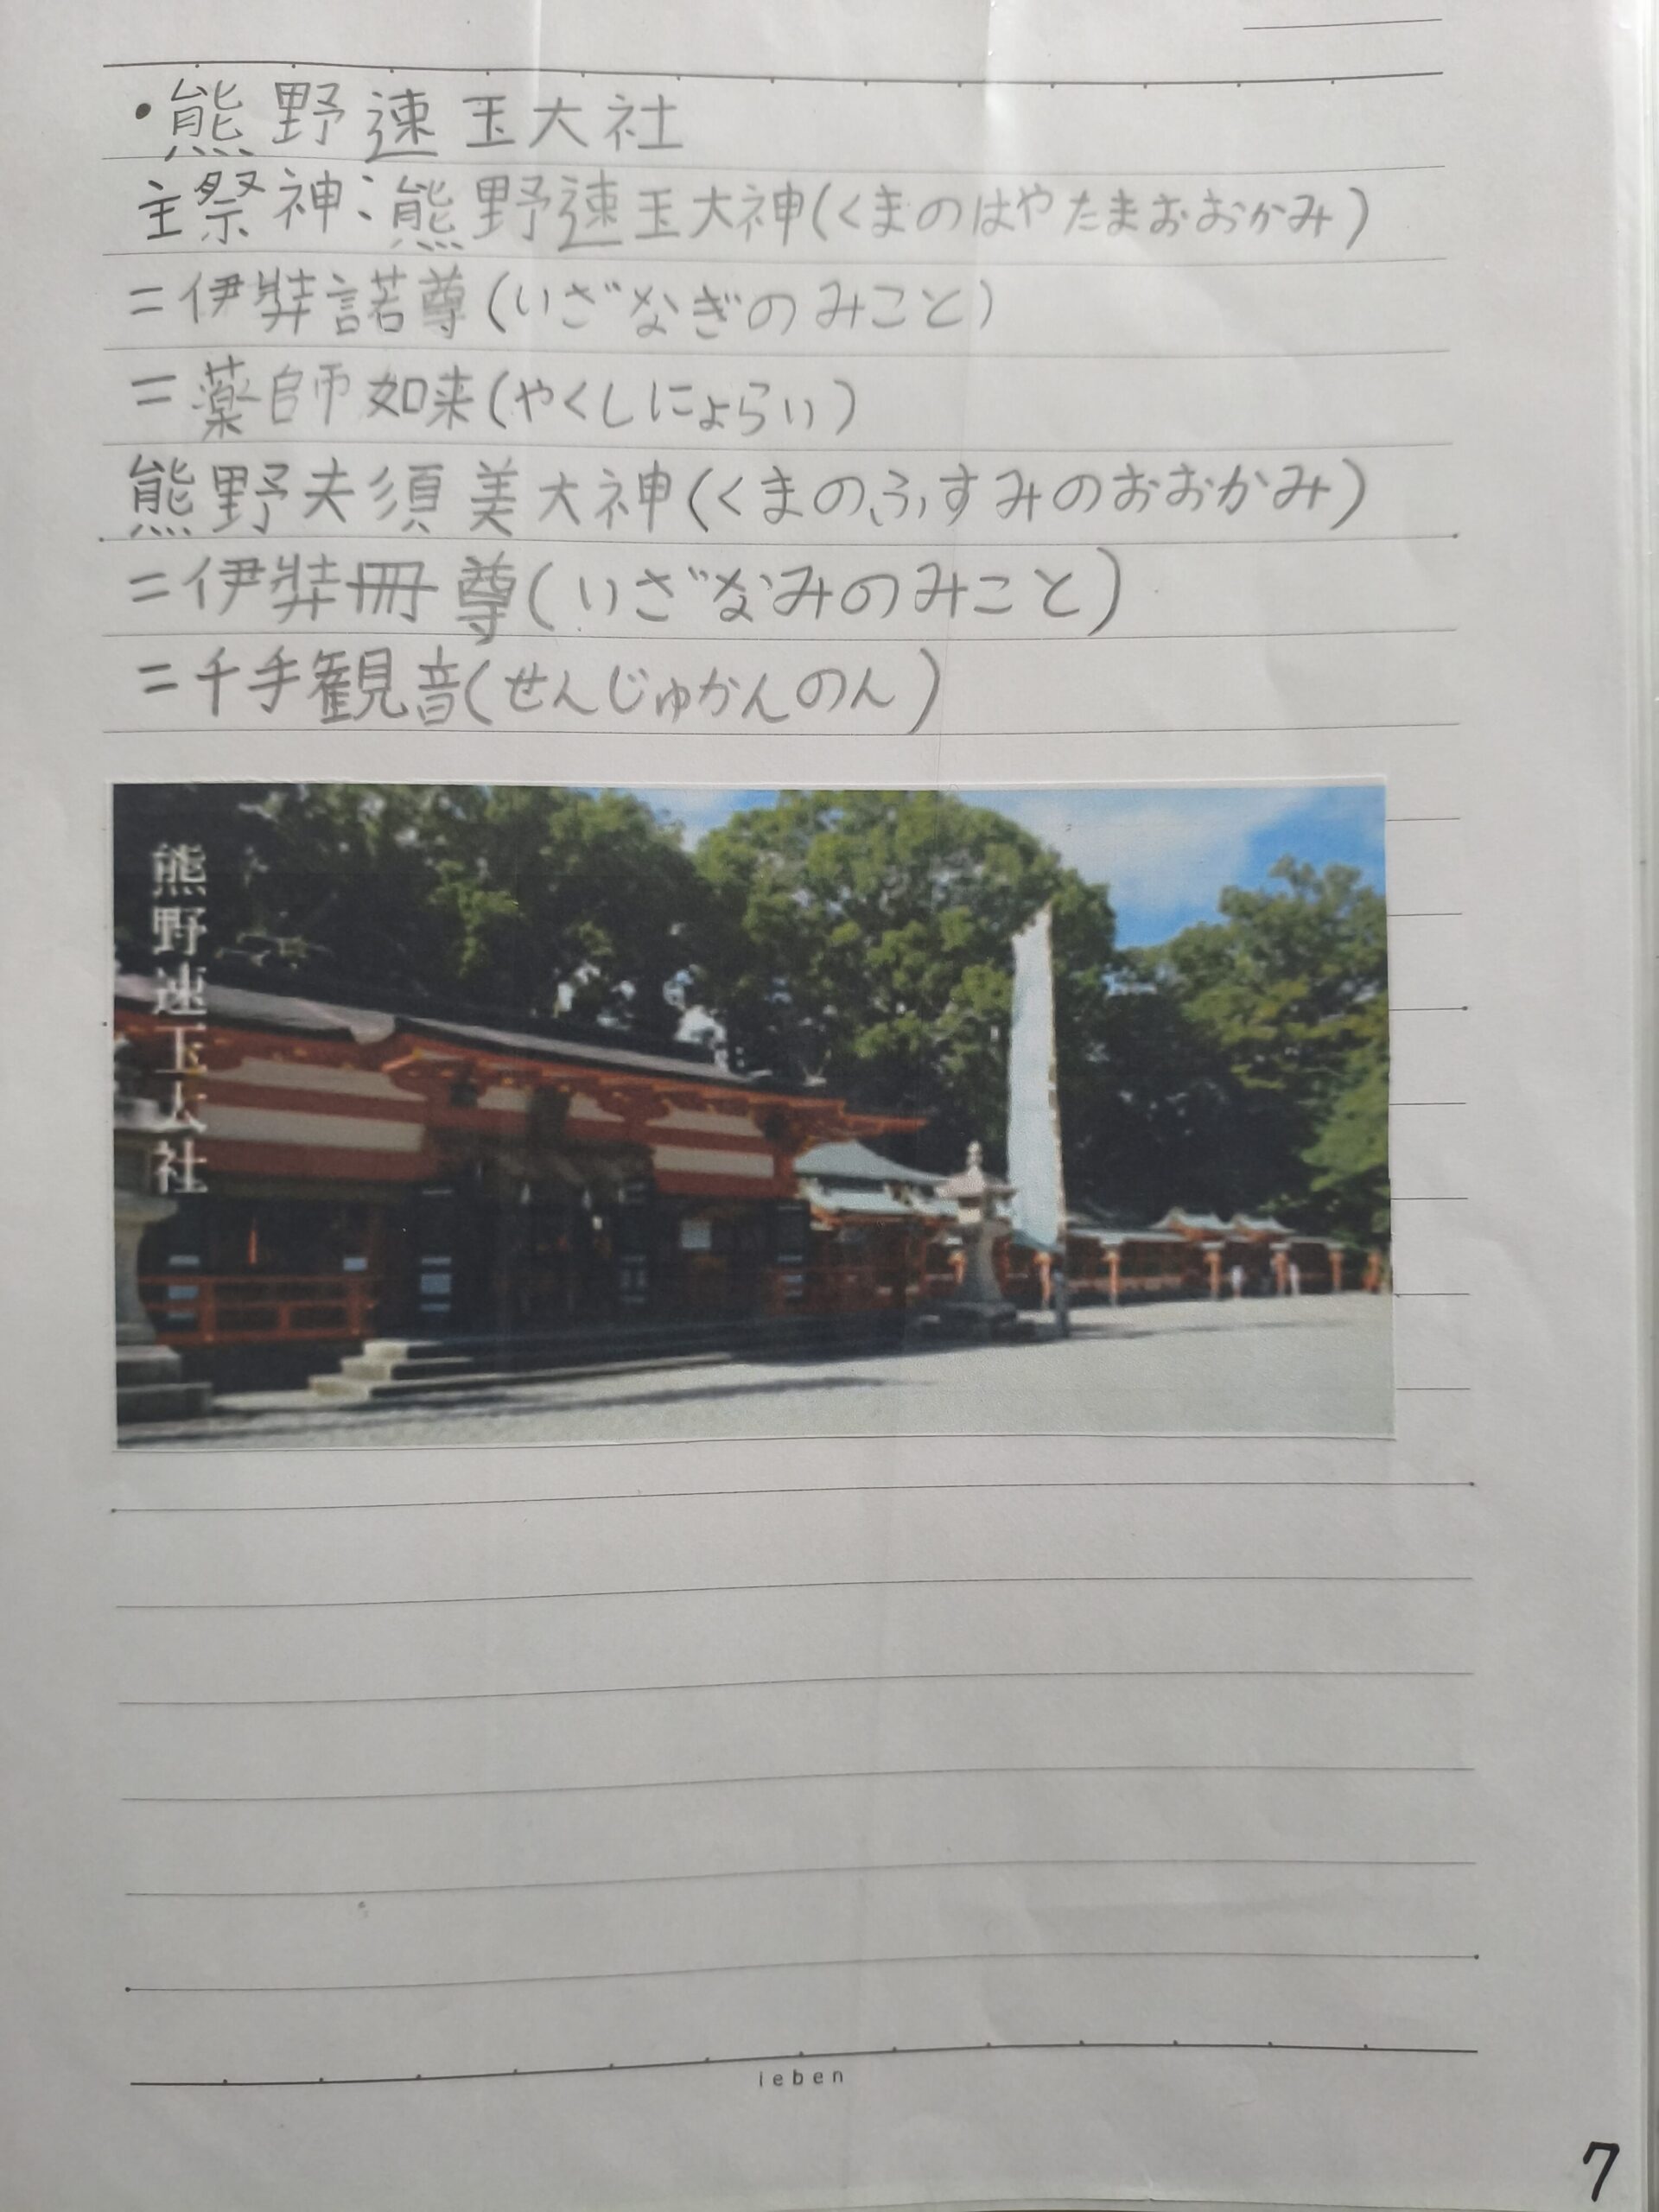 ・熊野速玉大社
主祭神:熊野速玉大神(くまのはやたまおおかみ)
=伊弉諾尊(いざなぎのみこと)
=薬師如来(やくしにょらい)
熊野夫須美大神(くまのふすみのおおかみ)
=伊弉冊尊(いざなみのみこと)
=千手観音(せんじゅかんのん)
熊野速玉大社
ieben
7